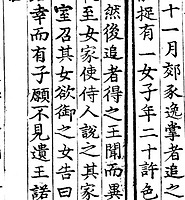 十一月郊豕逸掌者追之
挺有一女子年二十許色
然後追者得之王聞而異
至女家使侍人說之其家
室召其女欲御之女告曰
幸而有子願不見遺王諾